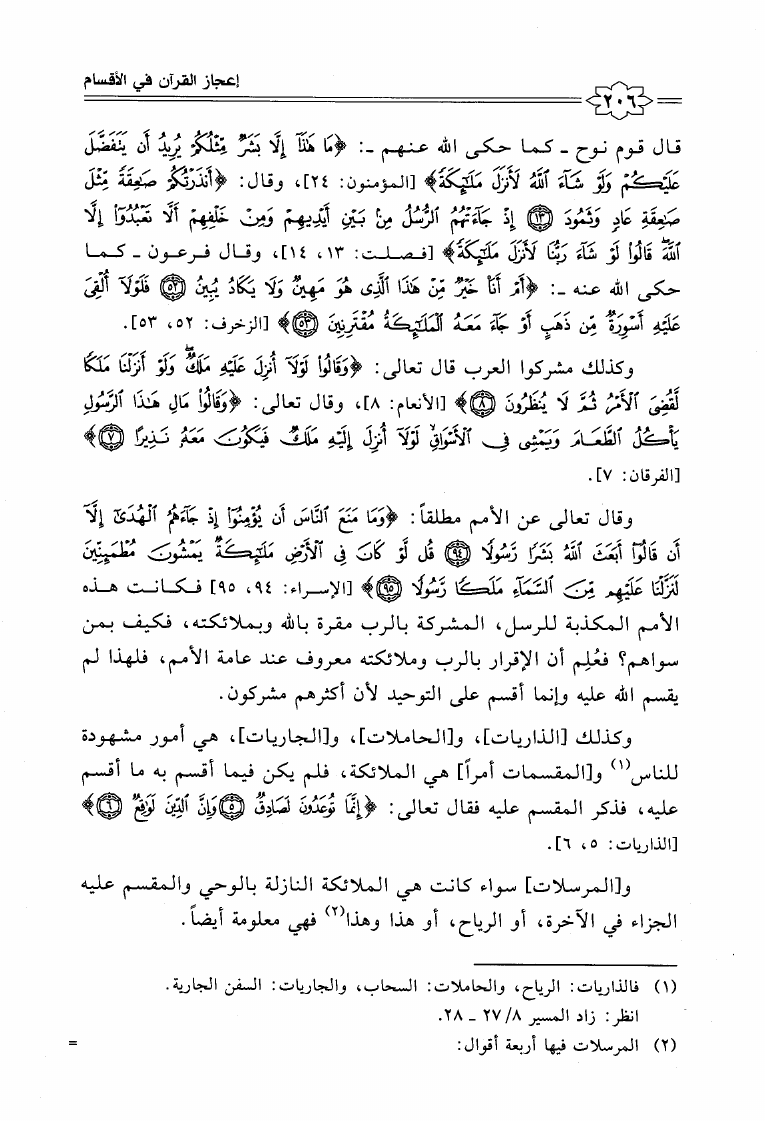 إعجاز القرآن في الأقسام
٢٠٦
قال قوم نوح ـ كما حكى الله عنهم ـ: ﴿مَا هَٰذَآ إِلَّا بَشَرٌ مِّثْلُكُمْ يُرِيدُ أَن يَتَفَضَّلَ
عَلَيْكُمْ وَلَوْ شَآءَ ٱللَّهُ لَأَنزَلَ مَلَٰٓئِكَةً﴾ [المؤمنون: ٢٤]، وقال: ﴿أَنذَرْتُكُمْ صَٰعِقَةً مِّثْلَ
صَٰعِقَةِ عَادٍ وَثَمُودَ ﴿١٣﴾ إِذْ جَآءَتْهُمُ ٱلرُّسُلُ مِنۢ بَيْنِ أَيْدِيهِمْ وَمِنْ خَلْفِهِمْ أَلَّا تَعْبُدُوٓا۟ إِلَّا
ٱللَّهَ ۖ قَالُوا۟ لَوْ شَآءَ رَبُّنَا لَأَنزَلَ مَلَٰٓئِكَةً﴾ [فصلت: ١٣، ١٤]، وقال فرعون ـ كما
حكى الله عنه ـ: ﴿أَمْ أَنَا۠ خَيْرٌ مِّنْ هَٰذَا ٱلَّذِى هُوَ مَهِينٌ وَلَا يَكَادُ يُبِينُ ﴿٥٢﴾ فَلَوْلَآ أُلْقِىَ
عَلَيْهِ أَسْوِرَةٌ مِّن ذَهَبٍ أَوْ جَآءَ مَعَهُ ٱلْمَلَٰٓئِكَةُ مُقْتَرِنِينَ ﴿٥٣﴾﴾ [الزخرف: ٥٢، ٥٣].
وكذلك مشركوا العرب قال تعالى: ﴿وَقَالُوا۟ لَوْلَآ أُنزِلَ عَلَيْهِ مَلَكٌ ۖ وَلَوْ أَنزَلْنَا مَلَكًا
لَّقُضِىَ ٱلْأَمْرُ ثُمَّ لَا يُنظَرُونَ ﴿٨﴾﴾ [الأنعام: ٨]، وقال تعالى: ﴿وَقَالُوا۟ مَالِ هَٰذَا ٱلرَّسُولِ
يَأْكُلُ ٱلطَّعَامَ وَيَمْشِى فِى ٱلْأَسْوَاقِ ۙ لَوْلَآ أُنزِلَ إِلَيْهِ مَلَكٌ فَيَكُونَ مَعَهُۥ نَذِيرًا ﴿٧﴾﴾
[الفرقان: ٧].
وقال تعالى عن الأمم مطلقاً: ﴿وَمَا مَنَعَ ٱلنَّاسَ أَن يُؤْمِنُوٓا۟ إِذْ جَآءَهُمُ ٱلْهُدَىٰٓ إِلَّآ
أَن قَالُوٓا۟ أَبَعَثَ ٱللَّهُ بَشَرًا رَّسُولًا ﴿٩٤﴾ قُل لَّوْ كَانَ فِى ٱلْأَرْضِ مَلَٰٓئِكَةٌ يَمْشُونَ مُطْمَئِنِّينَ
لَنَزَّلْنَا عَلَيْهِم مِّنَ ٱلسَّمَآءِ مَلَكًا رَّسُولًا ﴿٩٥﴾﴾ [الإسراء: ٩٤، ٩٥] فكانت هذه
الأمم المكذبة للرسل، المشركة بالرب مقرة بالله وبملائكته، فكيف بمن
سواهم؟ فعُلِم أن الإقرار بالرب وملائكته معروف عند عامة الأمم، فلهذا لم
يقسم الله عليه وإنما أقسم على التوحيد لأن أكثرهم مشركون.
وكذلك [الذاريات]، و[الحاملات]، و[الجاريات]، هي أمور مشهودة
للناس(١) و[المقسمات أمراً] هي الملائكة، فلم يكن فيما أقسم به ما أقسم
عليه، فذكر المقسم عليه فقال تعالى: ﴿إِنَّمَا تُوعَدُونَ لَصَادِقٌ ﴿٥﴾ وَإِنَّ ٱلدِّينَ لَوَٰقِعٌ ﴿٦﴾﴾
[الذاريات: ٥، ٦].
و[المرسلات] سواء كانت هي الملائكة النازلة بالوحي والمقسم عليه
الجزاء في الآخرة، أو الرياح، أو هذا وهذا(٢) فهي معلومة أيضاً.
(١) فالذاريات: الرياح، والحاملات: السحاب، والجاريات: السفن الجارية.
انظر: زاد المسير ٨/ ٢٧ ـ ٢٨.
(٢) المرسلات فيها أربعة أقوال: =